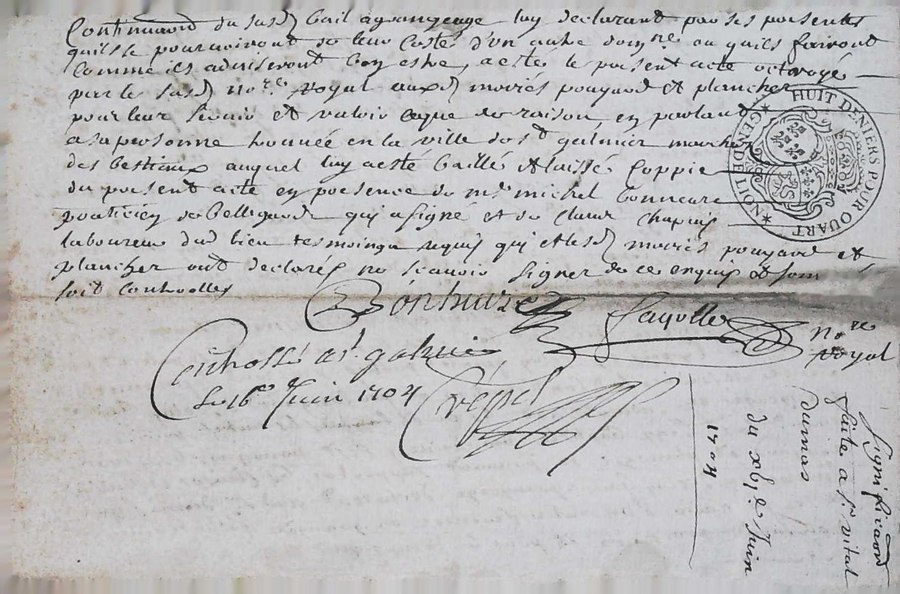 Continuaon du susd bail a grangeage luy declarant par ses presentes
quils se pourvoiront de leur costés d'un autre dom.ne ou quils fairont
comme ils adviseront bon estre, acte le present acte octroyé
par le susd no.re royal auxd mariés pouyard et plancher
pour leur servir et valoir ce que de raison, en parlant
a sa personne trouvée en la ville de st galmier marchand
des bestiaux auquel luy a esté baillé et laissé coppie
du present acte en presence de m.e michel bonnure
praticien de Bellegarde qui a signe et de Claude Chapuis
laboureur dud lieu tesmoings requis qui et lesd mariés pouyard et
plancher ont declarés ne scavoir signer de ce enquis et som
soit controolles
Bónhure
fayolle
No.re
royal
Controllé a st. galmier
Le 16e Juin 1704
Crépet
HUIT DENIERS POUR QUART
GEN DE LION
Signification
faite a sr. vital
dumas
du xbj.e Juin
1704